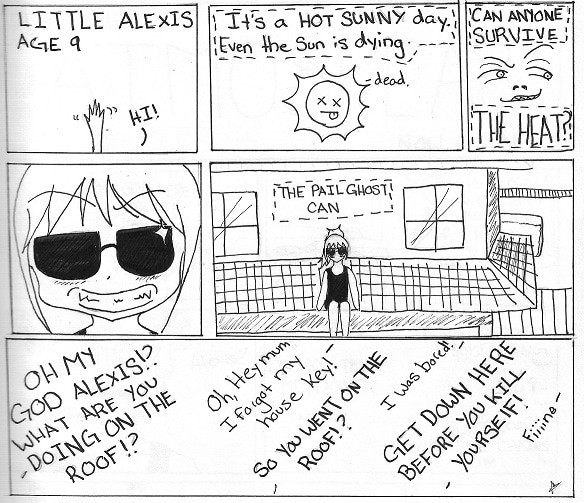 LITTLE ALEXIS
AGE 9
HI!
It's a HOT SUNNY day.
Even the Sun is dying.
-dead.
CAN ANYONE
SURVIVE
THE HEAT?
THE PAIL GHOST
CAN
OH MY
GOD ALEXIS!?
WHAT ARE YOU
DOING ON THE
ROOF!?
Oh, Hey mum
I forgot my
house key!
SO YOU WENT ON THE
ROOF!?
I was bored!
GET DOWN HERE
BEFORE YOU KILL
YOURSELF!
Fiiiine